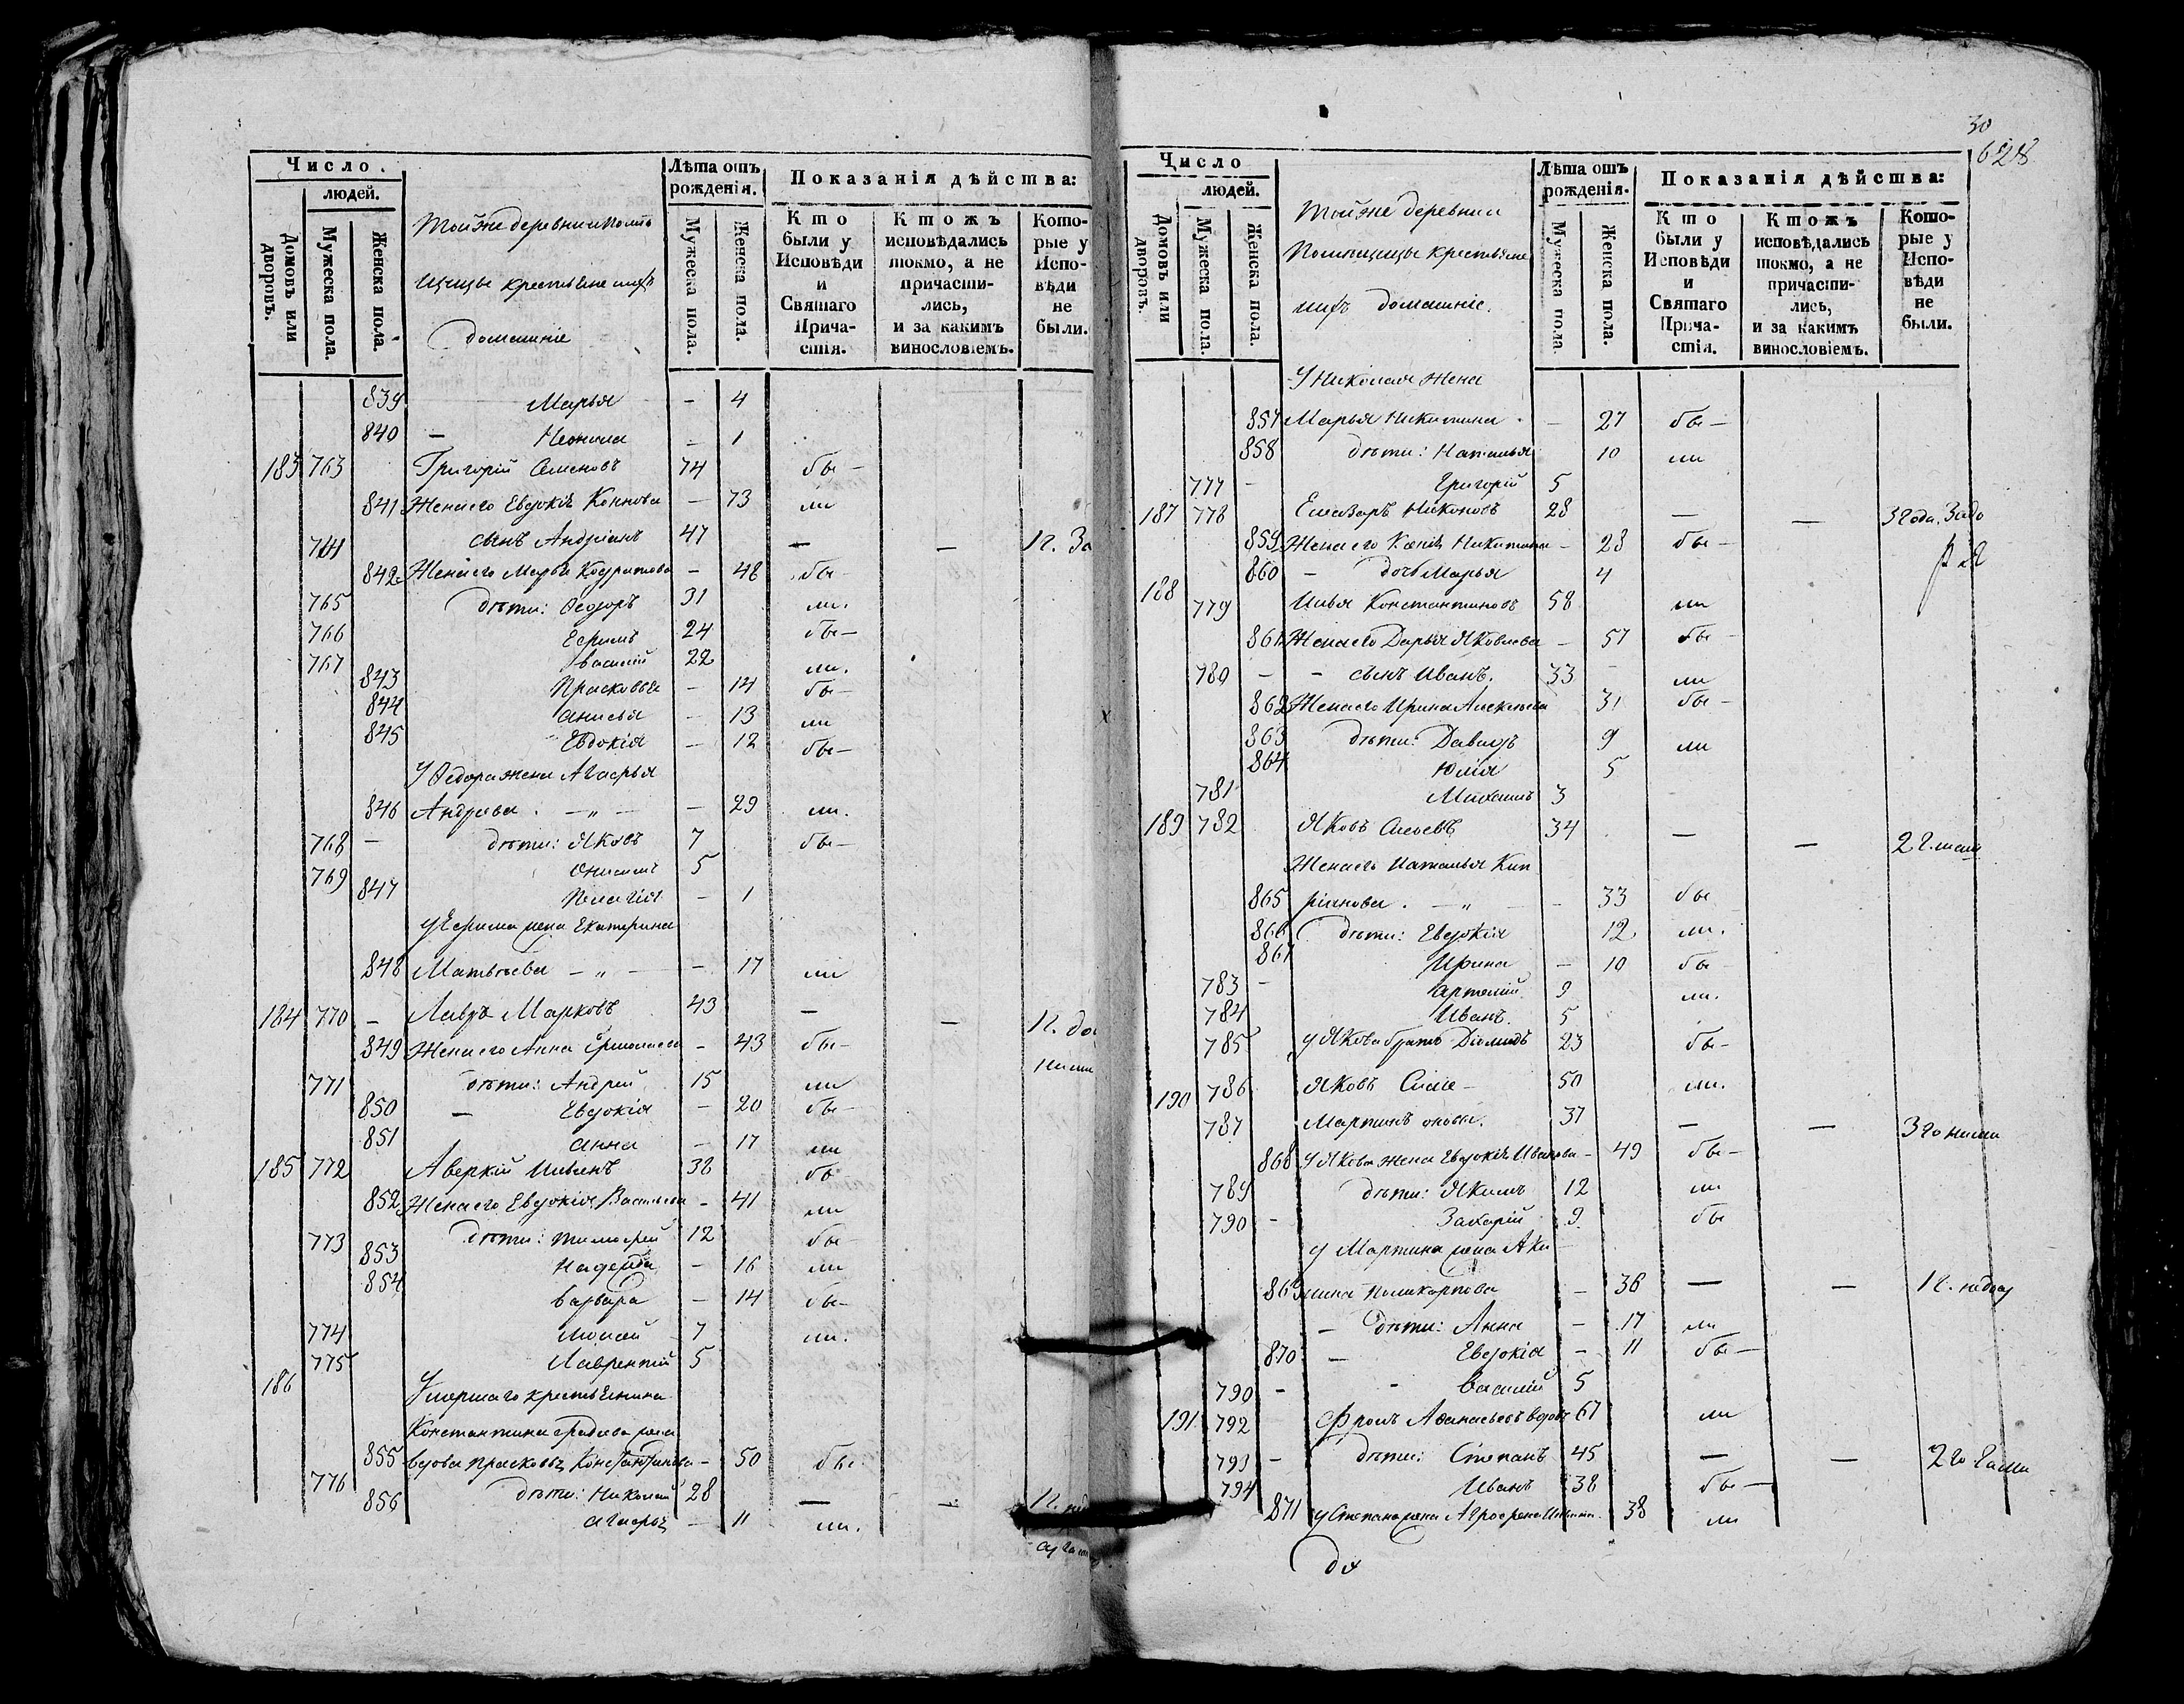 Число.
людей.
Домовъ или дворовъ.
Мужеска пола.
Женска пола.
Тойже деревни помѣ
щицы крестьяне ихъ
домашніе
Лѣта отъ рожденія.
Мужеска пола.
Женска пола.
Показанія дѣйства:
Кто были у Исповѣди и Святаго Прича- стія.
Ктожъ исповѣдались токмо, а не причасти- лись, и за какимъ винословіемъ.
Кото- рые у Испо- вѣди не были.
839 Марья - 4
840 - 1
183 763 Григорій Семеновъ 74 бы-
841 Жена его Евдокія - 73 ли
сынъ Андріанъ 47 - - 1 г. За
842 Жена его Марья - 48 бы-
765 дѣти: Ѳедоръ 31 ли.
766 Ефимъ 24 бы-
767 Василій 22 ли.
843 Прасковья - 14 бы-
844 Анисья - 13 ли
845 Евдокія - 12 бы-
У Ѳедора жена Агафья
846 Андреева - „ - - 29 ли.
768 - дѣти: Яковъ 7 бы-
769 Онисимъ 5
847 Пелагія - 1
у Ефима жена Екатерина
848 Матвѣева - „ - - 17 ли
184 770 - Лавръ Марковъ 43 - - 1 г.
849 Жена его Анна Ермолаева - 43 бы-
771 дѣти: Андрей 15 ли
850 - Евдокія - 20 бы-
851 Анна - 17 ли
185 772 Аверкій Ильинъ 38 бы
852 Жена его Евдокія Васильева - 41 ли
773 дѣти: Тимофей 12 бы-
853 Надежда - 16 ли
854 Варвара - 14 бы-
774 7 ли.
775 Лаврентій 5
186 Умершаго крестьянина
Константина жена
855 вдова Прасковья Константинова - 50 бы
776 дѣти: Николай 28 - - 1 г.
856 Агафья - 11 ли.
30
628
Число
людей.
Домовъ или дворовъ.
Мужеска пола.
Женска пола.
Тойже деревни
Помѣщицы крестьяне
ихъ домашніе.
Лѣта отъ рожденія.
Мужеска пола.
Женска пола.
Показанія дѣйства:
Кто были у Исповѣди и Святаго Прича- стія.
Ктожъ исповѣдались токмо, а не причасти- лись, и за какимъ винословіемъ.
Кото- рые у Испо- вѣди не были.
У Николая жена
857 Марья Никитина - 27 бы-
858 дѣти: Наталья 10 ли
777 - Григорій 5
187 778 Елеазаръ Никоновъ 28 - - 3 года
859 Жена его Никитина - 28 бы-
860 - дочь Марья 4
188 779 Илья Константиновъ 58 ли
861 Жена его Дарья Яковлева - 57 бы-
780 - - сынъ Иванъ. 33 ли
862 Жена его Ирина Алексѣева 31 бы-
863 дѣти: Давидъ 9 ли
864 Юлія 5
781 Михаилъ 3
189 782 Яковъ 34 - - 2 г.
Жена его Наталья Кип
865 ріянова. - „ - - 33 бы
866 дѣти: Евдокія 12 ли.
867 Ирина - 10 бы-
783 - Артемій 9 ли.
784 Иванъ. 5
785 у Якова братъ Діомидъ 23 бы-
190 786 Яковъ Симе- 50 ли.
787 Мартинъ оновы. 37 - - 3 го
868 у Якова жена Евдокія Иванова - 49 бы-
789 дѣти: Якимъ 12 ли
790 - Захарій 9 бы
у Мартина жена Аки-
869 лина Поликарпова - 36 - - 1 г.
- дѣти: Анна - 17 ли
870 - Евдокія - 11 бы-
790 - - Василій 5
191 792 Фролъ Афанасьевъ вдовъ 67 ли
793 - дѣти: Степанъ 45 - - 2 го
794 Иванъ 38 бы-
871 у Степана жена Агрофена 38 ли
дѣ